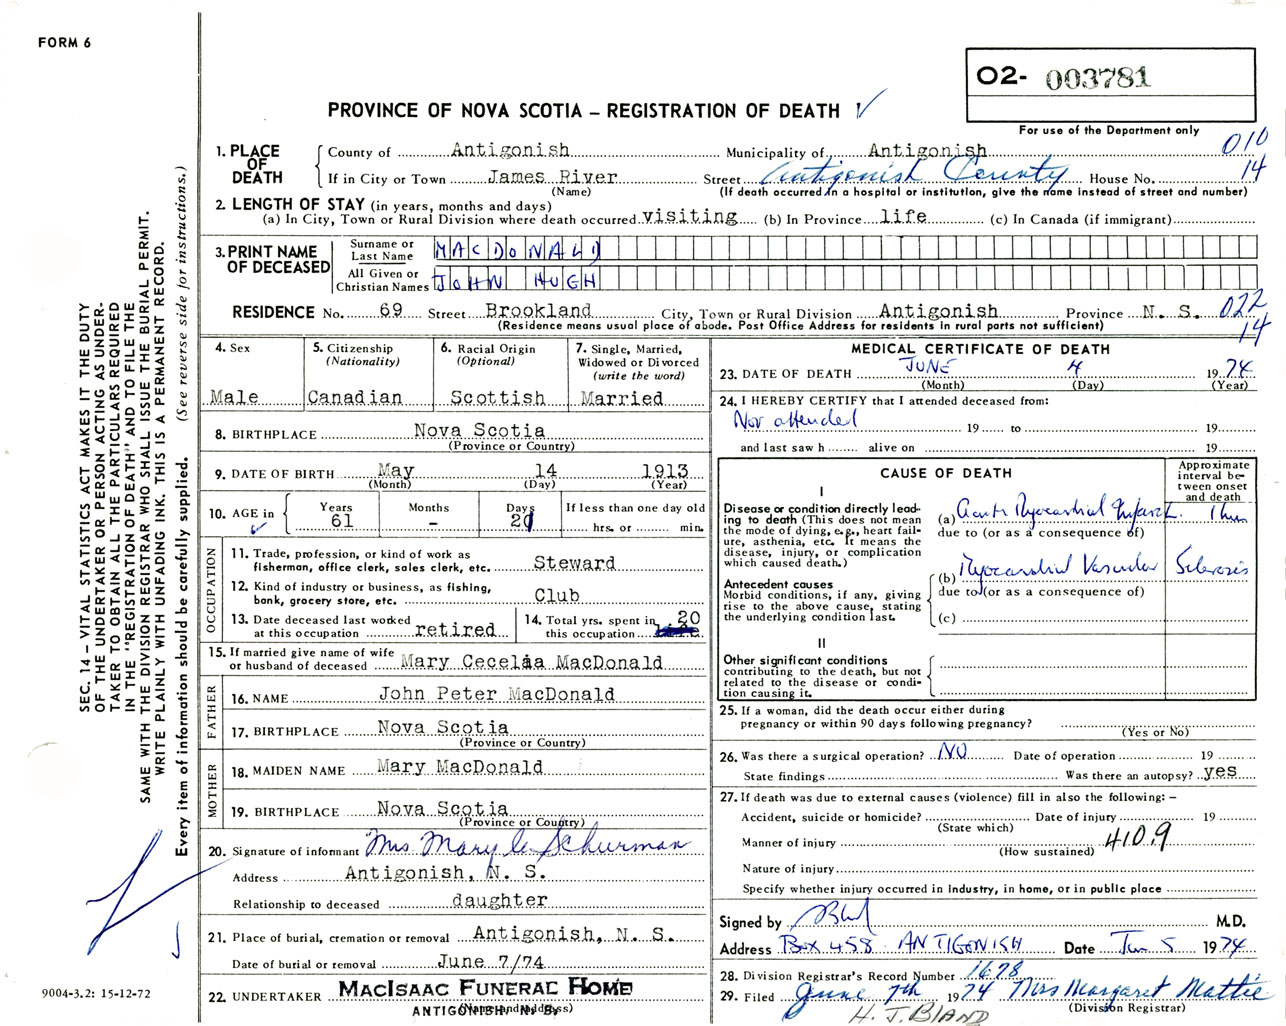 FORM 6
O2- 003781
For use of the Department only
PROVINCE OF NOVA SCOTIA – REGISTRATION OF DEATH
010
14
1. PLACE OF DEATH
County of Antigonish Municipality of Antigonish
If in City or Town James River Street Antigonish County House No.
(Name) (If death occurred in a hospital or institution, give the name instead of street and number)
2. LENGTH OF STAY (in years, months and days)
(a) In City, Town or Rural Division where death occurred visiting (b) In Province life (c) In Canada (if immigrant)
3. PRINT NAME OF DECEASED
Surname or Last Name MACDONALD
All Given or Christian Names JOHN HUGH
RESIDENCE No. 69 Street Brookland City, Town or Rural Division Antigonish Province N. S. 022
(Residence means usual place of abode. Post Office Address for residents in rural parts not sufficient) 14
4. Sex Male
5. Citizenship (Nationality) Canadian
6. Racial Origin (Optional) Scottish
7. Single, Married, Widowed or Divorced (write the word) Married
8. BIRTHPLACE Nova Scotia
(Province or Country)
9. DATE OF BIRTH May 14 1913
(Month) (Day) (Year)
10. AGE in Years 61 Months - Days 20 If less than one day old hrs. or min.
OCCUPATION
11. Trade, profession, or kind of work as fisherman, office clerk, sales clerk, etc. Steward
12. Kind of industry or business, as fishing, bank, grocery store, etc. Club
13. Date deceased last worked at this occupation retired
14. Total yrs. spent in this occupation 20
15. If married give name of wife or husband of deceased Mary Cecelia MacDonald
FATHER
16. NAME John Peter MacDonald
17. BIRTHPLACE Nova Scotia
(Province or Country)
MOTHER
18. MAIDEN NAME Mary MacDonald
19. BIRTHPLACE Nova Scotia
(Province or Country)
20. Signature of informant Mrs Mary C Schurman
Address Antigonish, N. S.
Relationship to deceased daughter
21. Place of burial, cremation or removal Antigonish, N. S.
Date of burial or removal June 7/74
22. UNDERTAKER MACISAAC FUNERAL HOME
(Name and address)
ANTIGONISH, N. S.
MEDICAL CERTIFICATE OF DEATH
23. DATE OF DEATH JUNE 4 1974
(Month) (Day) (Year)
24. I HEREBY CERTIFY that I attended deceased from:
Not attended 19 to 19
and last saw h alive on 19
CAUSE OF DEATH
Approximate interval between onset and death
I
Disease or condition directly leading to death (This does not mean the mode of dying, e.g., heart failure, asthenia, etc. It means the disease, injury, or complication which caused death.)
(a) Acute Myocardial Infarct. 1 hur
due to (or as a consequence of)
Antecedent causes
Morbid conditions, if any, giving rise to the above cause, stating the underlying condition last.
(b) Myocardial Vascular Sclerosis
due to (or as a consequence of)
(c)
II
Other significant conditions
contributing to the death, but not related to the disease or condition causing it.
25. If a woman, did the death occur either during pregnancy or within 90 days following pregnancy?
(Yes or No)
26. Was there a surgical operation? NO Date of operation 19
State findings Was there an autopsy? yes
27. If death was due to external causes (violence) fill in also the following: –
Accident, suicide or homicide? Date of injury 19
(State which)
Manner of injury 410.9
(How sustained)
Nature of injury
Specify whether injury occurred in Industry, in home, or in public place
Signed by M.D.
Address Box 458 ANTIGONISH Date Jun 5 1974
28. Division Registrar's Record Number 1678
29. Filed June 7th 1974 Mrs Margaret Mattie
(Division Registrar)
H. J. BLAND
SEC. 14 – VITAL STATISTICS ACT MAKES IT THE DUTY
OF THE UNDERTAKER OR PERSON ACTING AS UNDER-
TAKER TO OBTAIN ALL THE PARTICULARS REQUIRED
IN THE "REGISTRATION OF DEATH" AND TO FILE THE
SAME WITH THE DIVISION REGISTRAR WHO SHALL ISSUE THE BURIAL PERMIT.
WRITE PLAINLY WITH UNFADING INK. THIS IS A PERMANENT RECORD.
Every item of information should be carefully supplied. (See reverse side for instructions.)
9004-3.2: 15-12-72